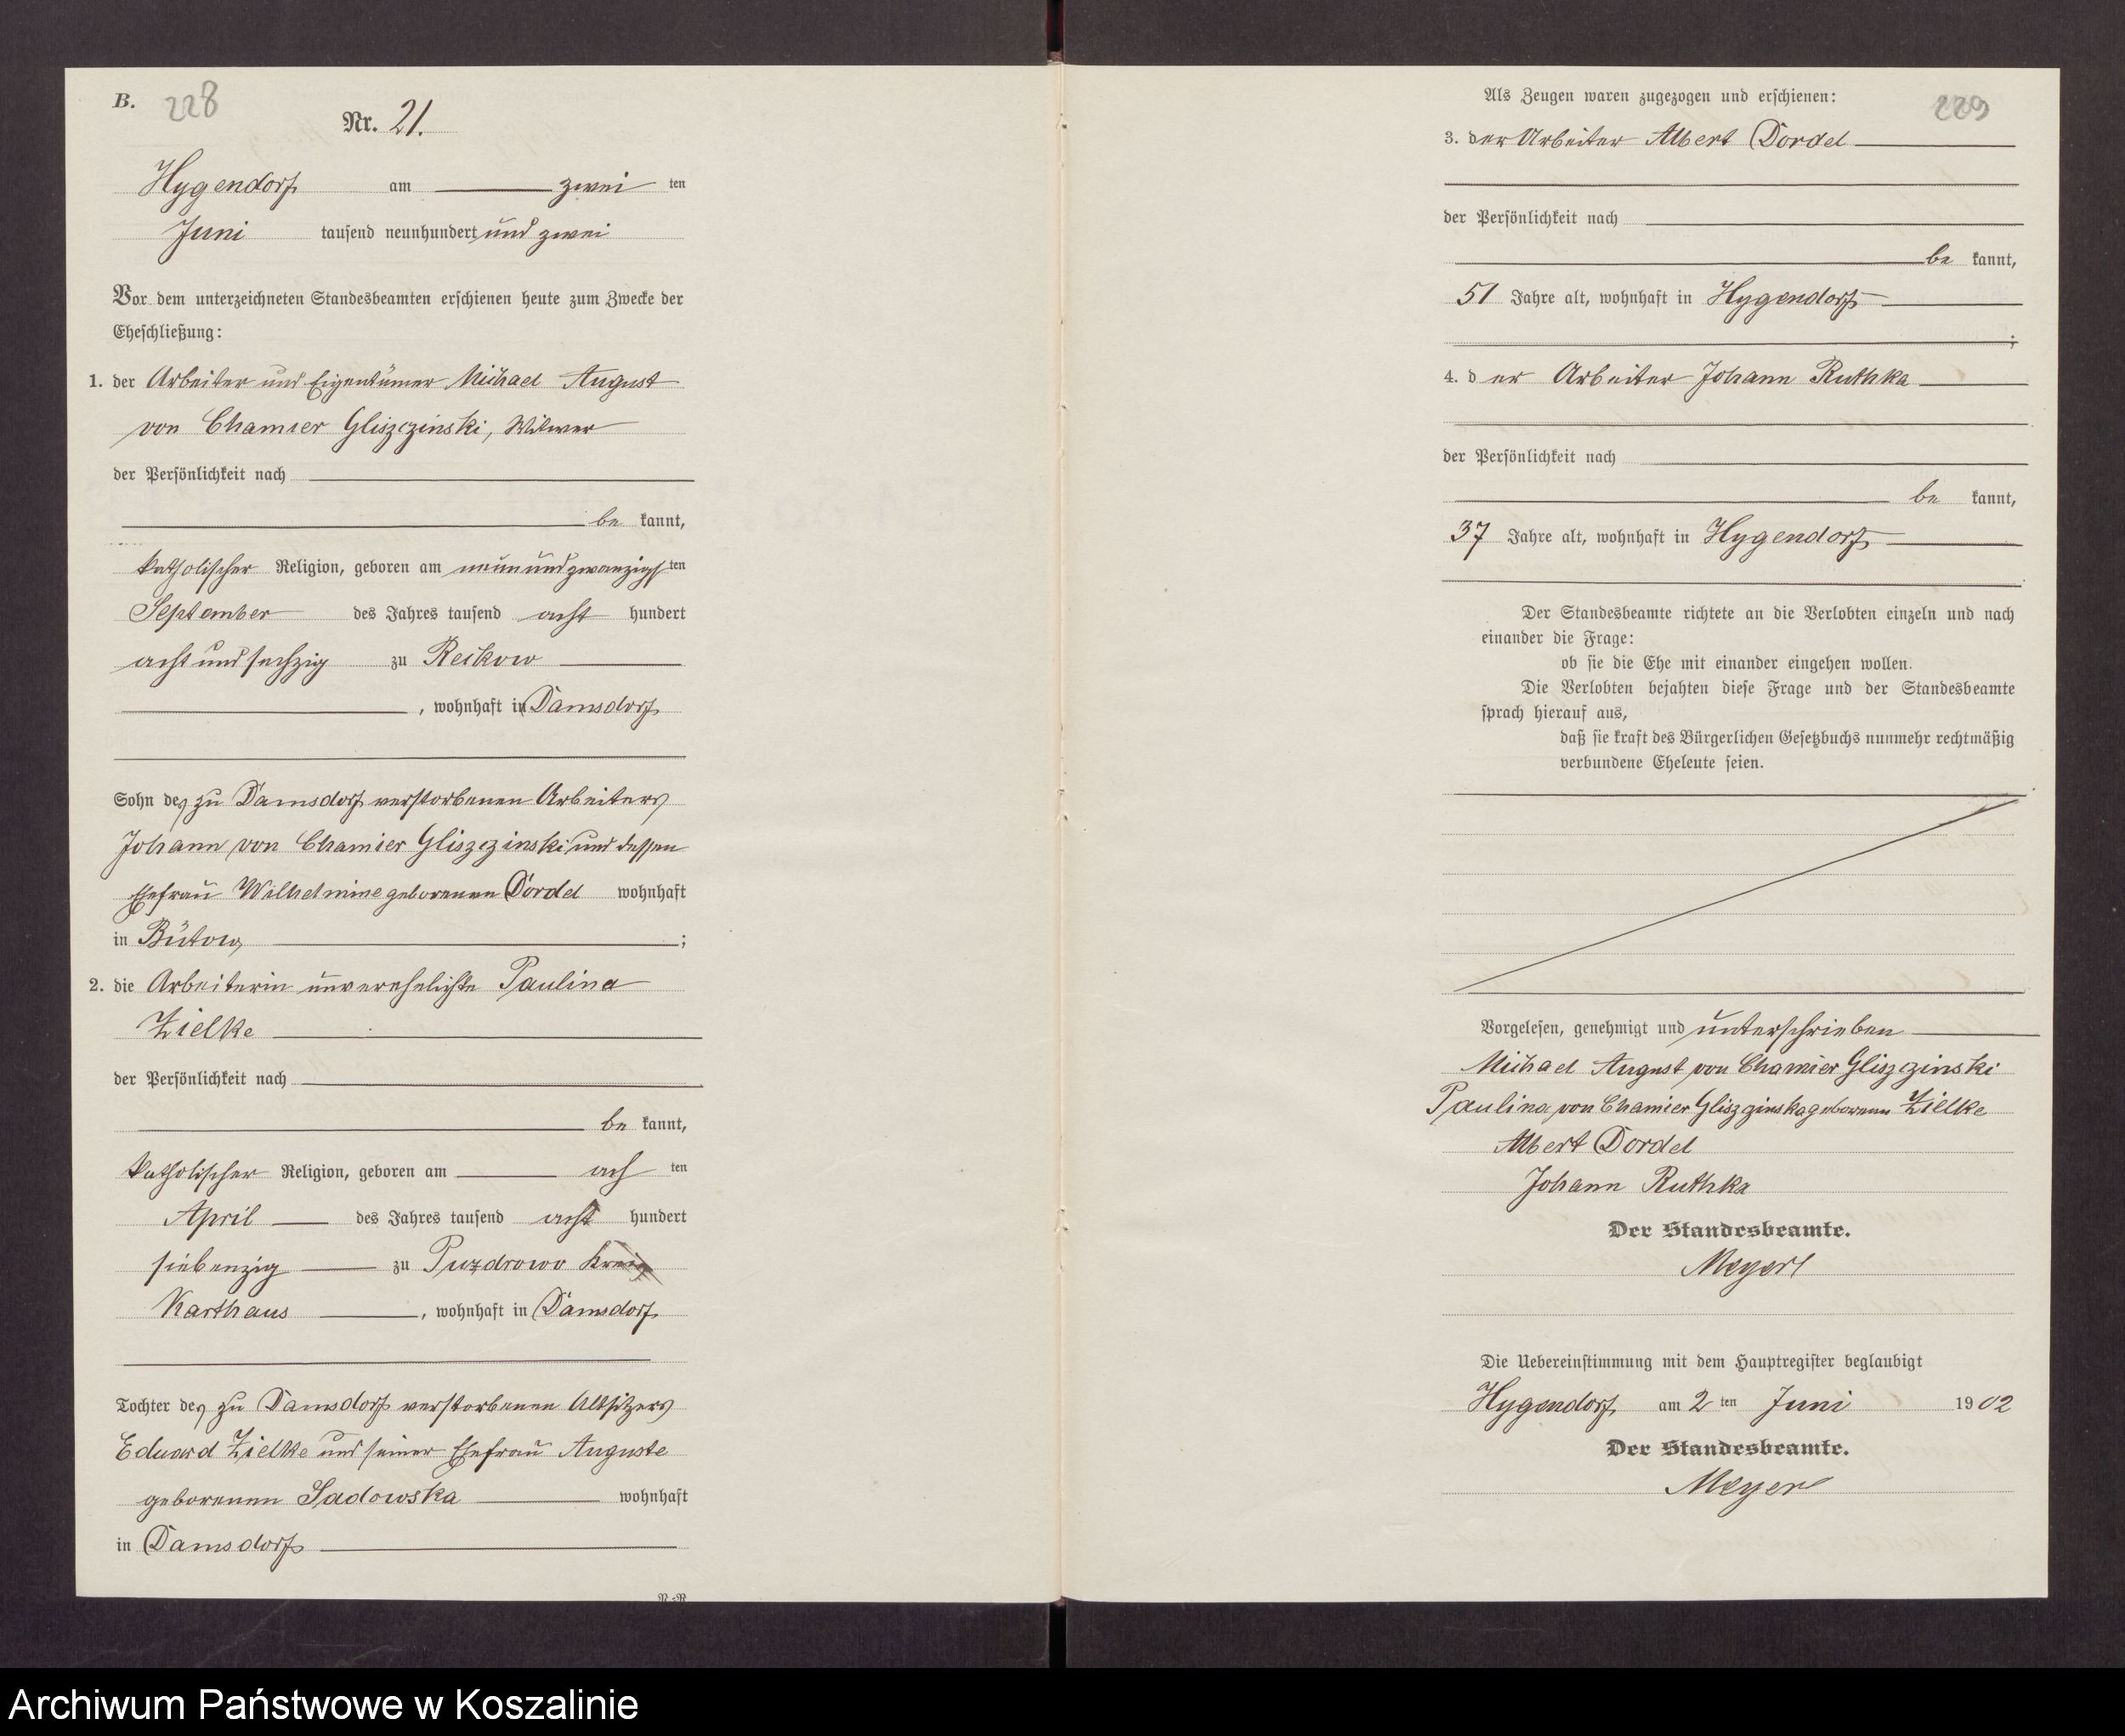 B. 228
Nr. 21.
Hygendorf am zwei ten
Juni tausend neunhundert und zwei
Vor dem unterzeichneten Standesbeamten erschienen heute zum Zwecke der
Eheschließung:
1. der Arbeiter und Eigentümer Michael August
von Chamier Gliszczinski, Witwer
der Persönlichkeit nach
be kannt,
katholischer Religion, geboren am neunundzwanzigs ten
September des Jahres tausend acht hundert
acht und sechzig zu Reckow
, wohnhaft in Damsdorf
Sohn des zu Damsdorf verstorbenen Arbeiters
Johann von Chamier Gliszczinski und dessen
Ehefrau Wilhelmine geborenen Dordel wohnhaft
in Bütow, ;
2. die Arbeiterin unverehelichte Paulina
Zielke
der Persönlichkeit nach
be kannt,
katholischer Religion, geboren am ach ten
April des Jahres tausend acht hundert
siebenzig zu Puzdrowo Kreis
Karthaus , wohnhaft in Damsdorf
Tochter des zu Damsdorf verstorbenen Altsitzers
Eduard Zielke und seiner Ehefrau Auguste
geborenen Sadowska wohnhaft
in Damsdorf
Als Zeugen waren zugezogen und erschienen:
229
3. der Arbeiter Albert Dordel
der Persönlichkeit nach
be kannt,
51 Jahre alt, wohnhaft in Hygendorf
;
4. d er Arbeiter Johann Ruthka
der Persönlichkeit nach
be kannt,
37 Jahre alt, wohnhaft in Hygendorf
Der Standesbeamte richtete an die Verlobten einzeln und nach
einander die Frage:
ob sie die Ehe mit einander eingehen wollen.
Die Verlobten bejahten diese Frage und der Standesbeamte
sprach hierauf aus,
daß sie kraft des Bürgerlichen Gesetzbuchs nunmehr rechtmäßig
verbundene Eheleute seien.
Vorgelesen, genehmigt und unterschrieben
Michael August von Chamier Gliszczinski
Paulina von Chamier Gliszczinska geborenen Zielke
Albert Dordel
Johann Ruthka
Der Standesbeamte.
Meyer
Die Uebereinstimmung mit dem Hauptregister beglaubigt
Hygendorf am 2 ten Juni 1902
Der Standesbeamte.
Meyer
Archiwum Państwowe w Koszalinie